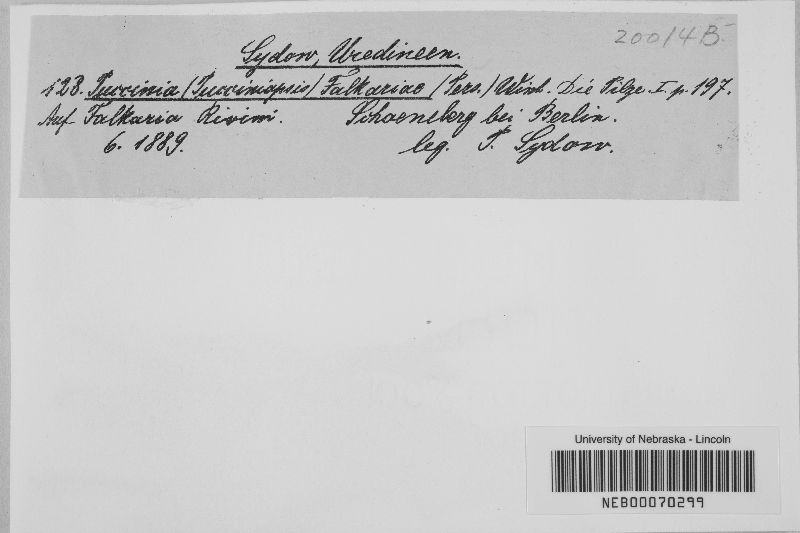 20014B
Sydow, Uredineen.
128. Puccinia (Pucciniopsis) Falkariae (Pers.) Wint. Die Pilze. I. p. 197.
Auf Falkaria Rivini. Schoeneberg bei Berlin.
6. 1889. leg. P. Sydow.
University of Nebraska - Lincoln
NEB00070299